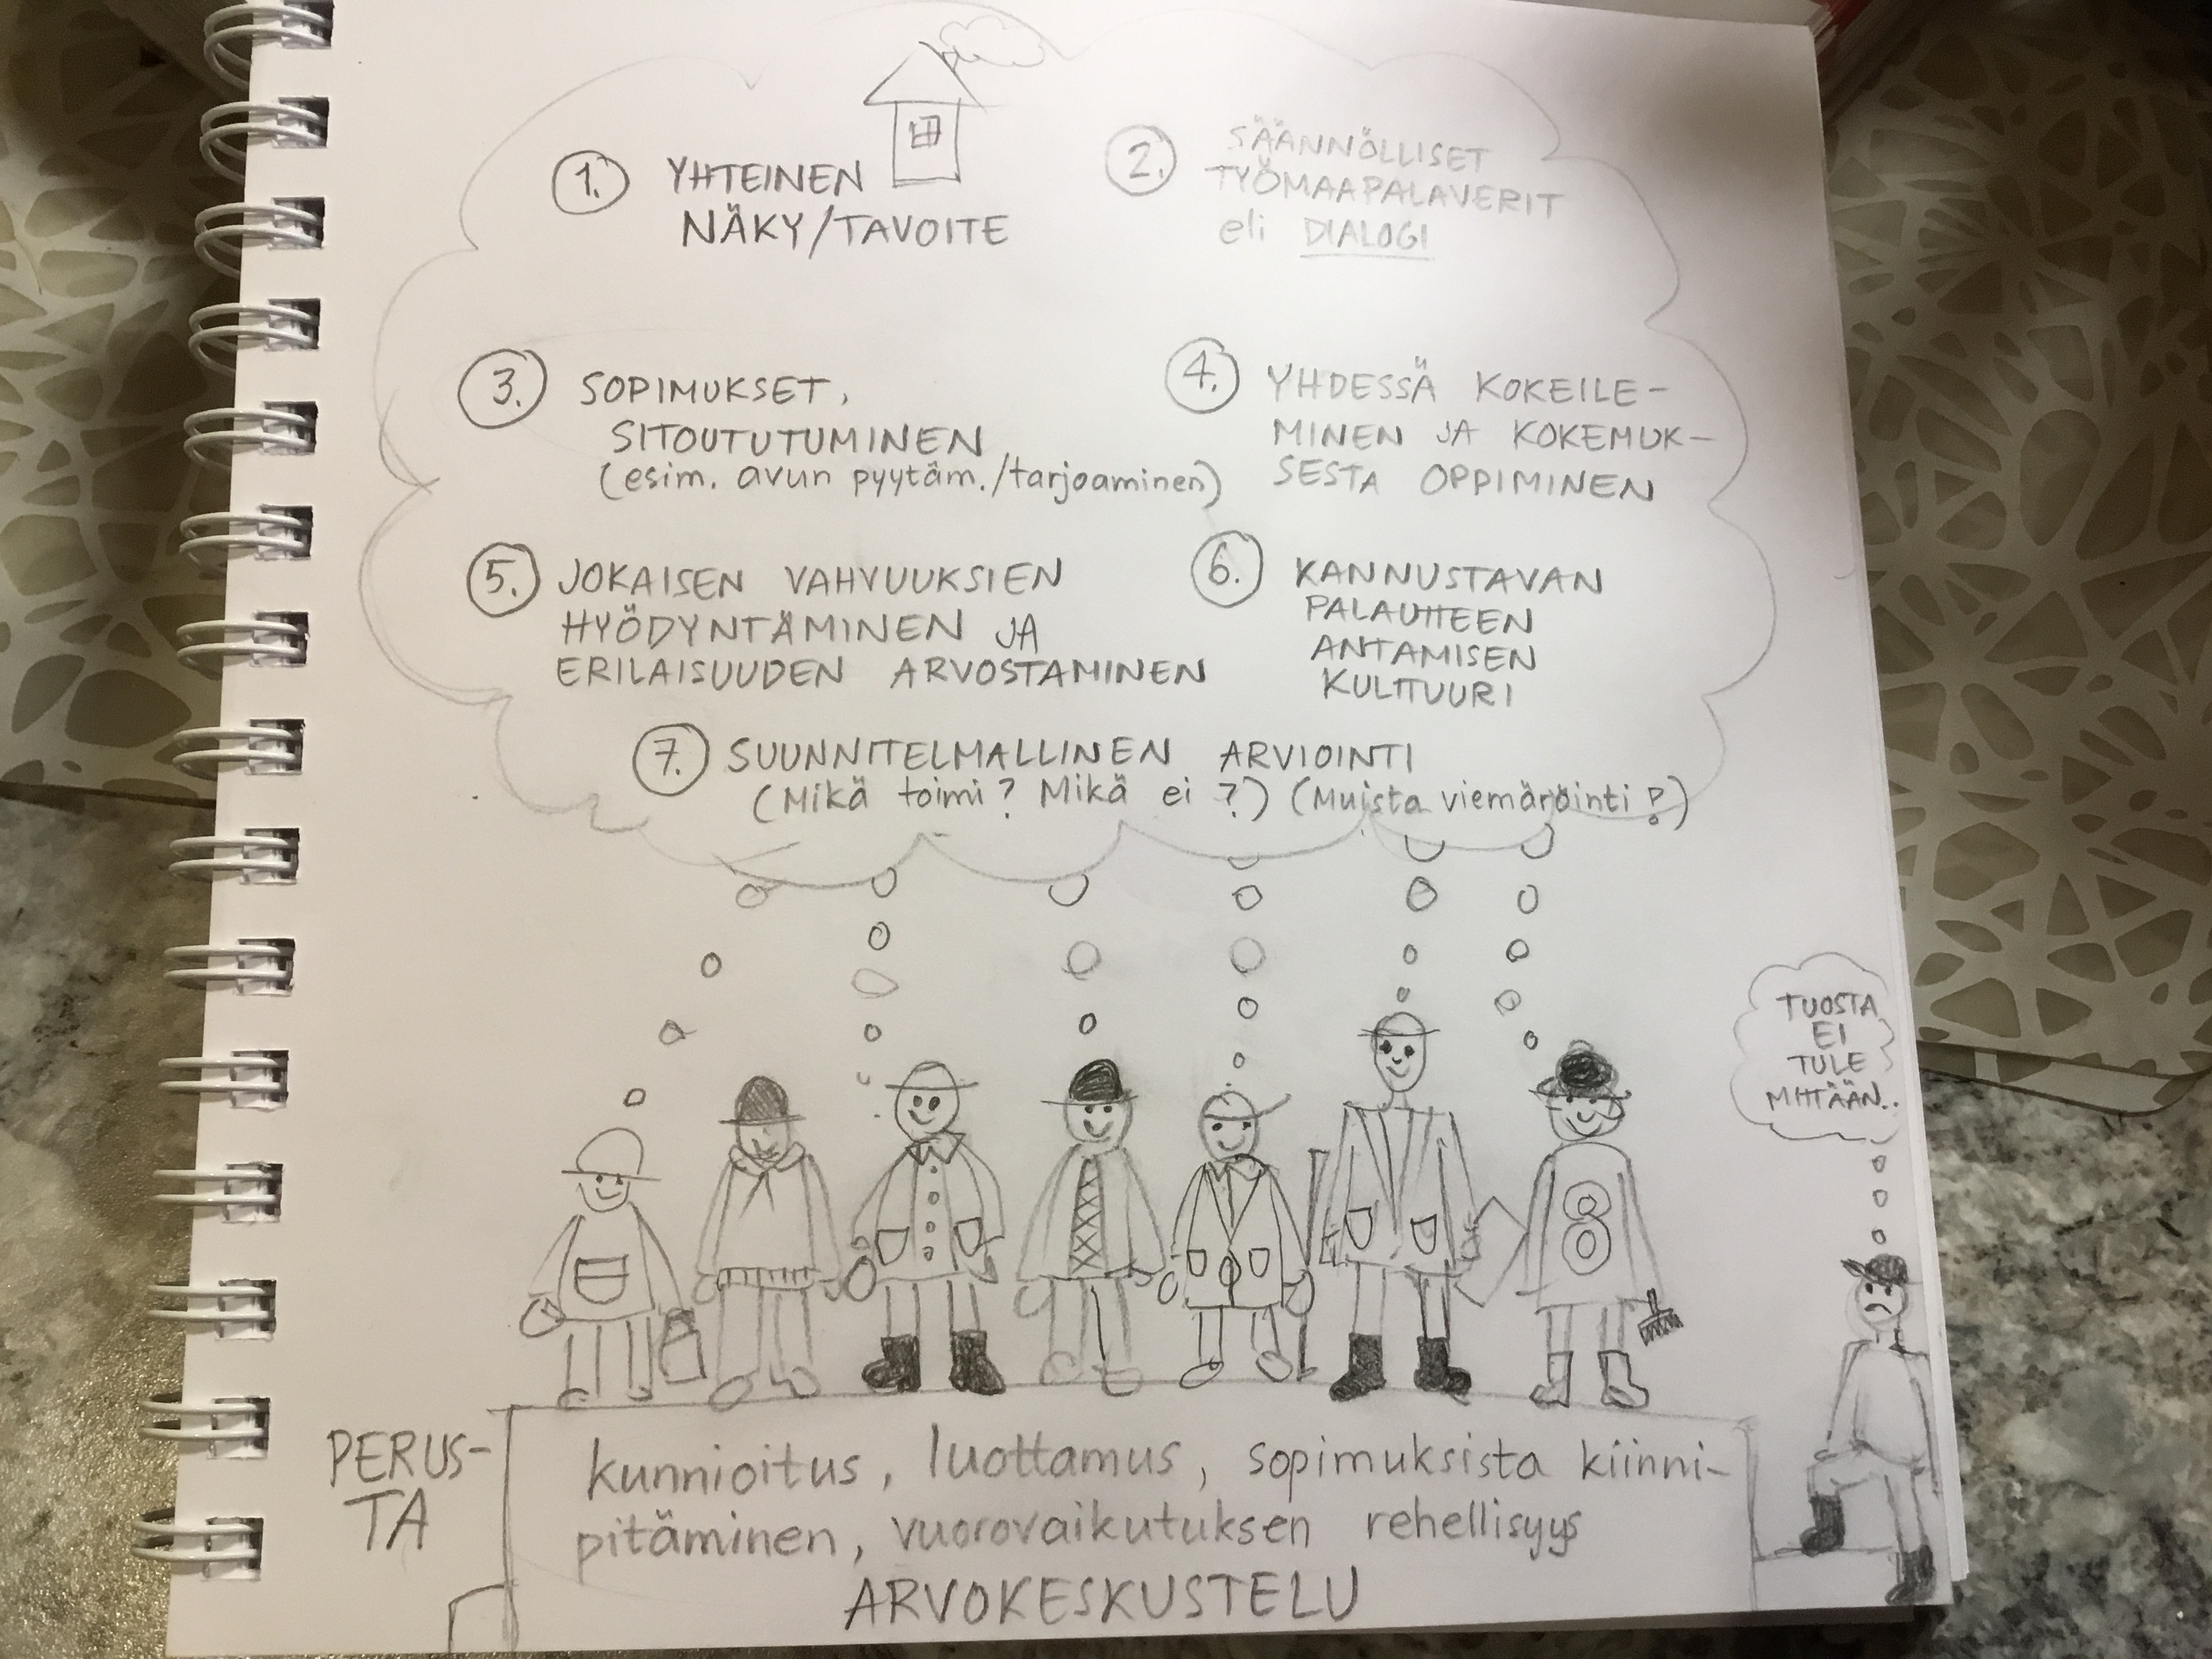 1. YHTEINEN
NÄKY/TAVOITE
2. SÄÄNNÖLLISET
TYÖMAAPALAVERIT
eli DIALOGI
3. SOPIMUKSET,
SITOUTUTUMINEN
(esim. avun pyytäm./tarjoaminen)
4. YHDESSÄ KOKEILE-
MINEN JA KOKEMUK-
SESTA OPPIMINEN
5. JOKAISEN VAHVUUKSIEN
HYÖDYNTÄMINEN JA
ERILAISUUDEN ARVOSTAMINEN
6. KANNUSTAVAN
PALAUTTEEN
ANTAMISEN
KULTTUURI
7. SUUNNITELMALLINEN ARVIOINTI
(Mikä toimi? Mikä ei?) (Muista viemäröinti!)
TUOSTA
EI
TULE
MITTÄÄN..
8
PERUS-
TA
kunnioitus, luottamus, sopimuksista kiinni-
pitäminen, vuorovaikutuksen rehellisyys
ARVOKESKUSTELU